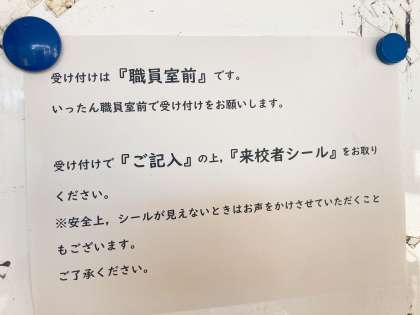 受け付けは『職員室前』です。
いったん職員室前で受け付けをお願いします。
受け付けで『ご記入』の上,『来校者シール』をお取り
ください。
※安全上，シールが見えないときはお声をかけさせていただくこと
もございます。
ご了承ください。